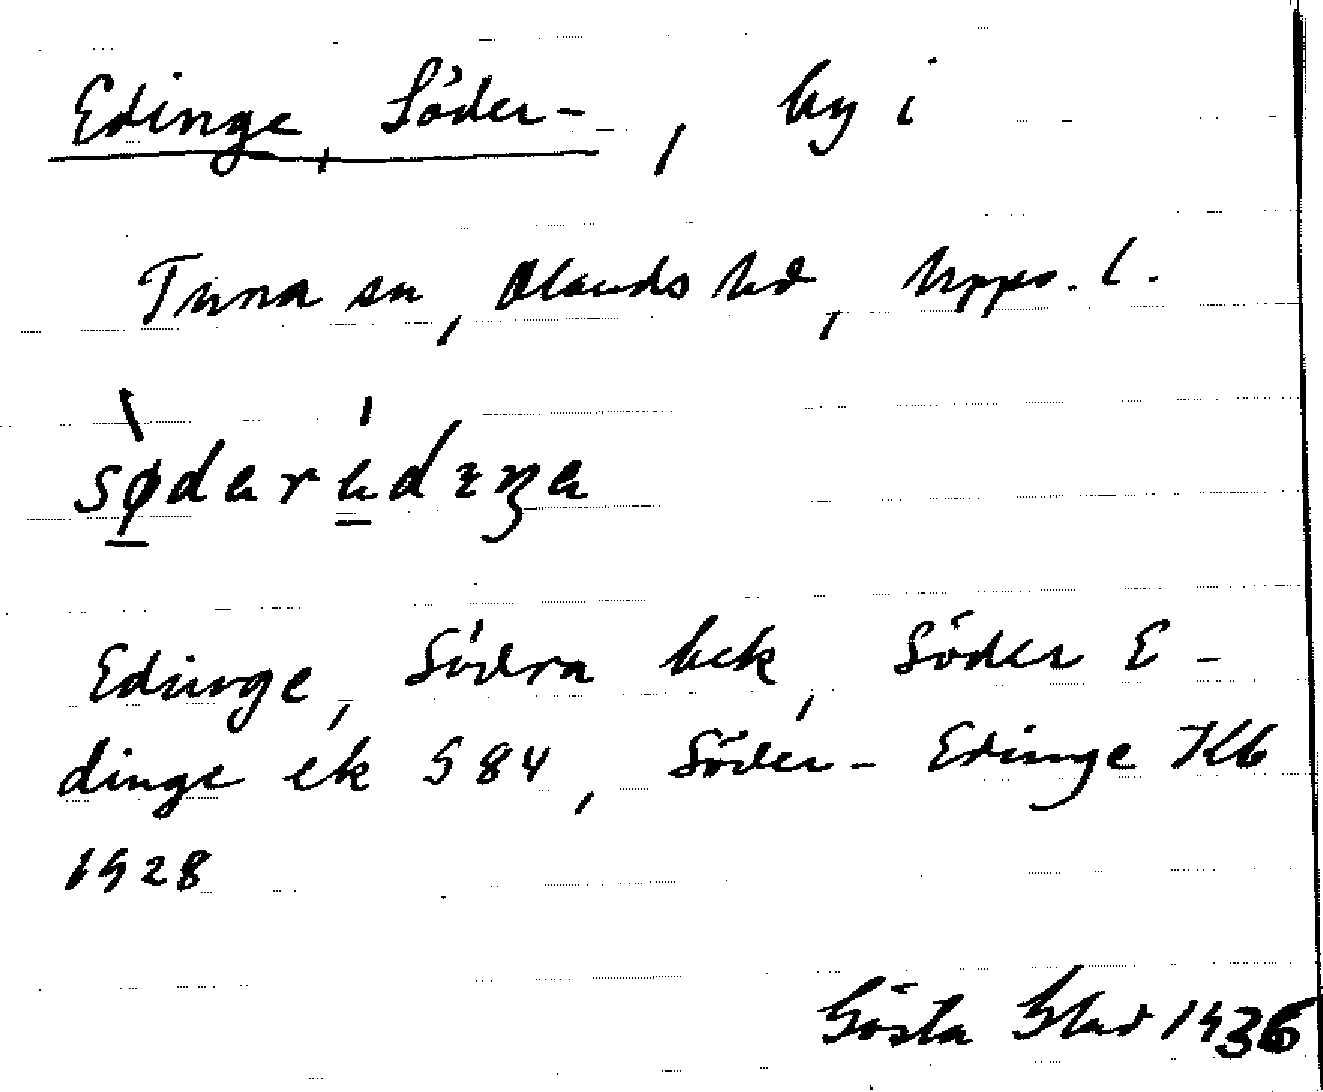 Edinge, Söder-, by i
Tuna sn, Olands hd, Upps. l.
Edinge, Södra bek, Söder E-
dinge ek 584, Söder-Edinge Kb
1928
Gösta Blad 1936